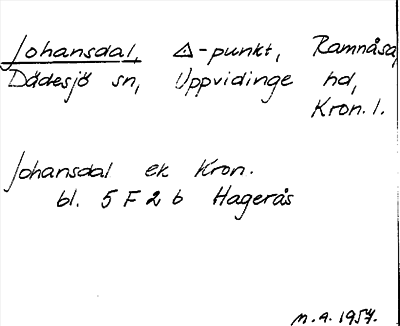 Johansdal, △-punkt, Ramnåsa,
Dädesjö sn, Uppvidinge hd,
Kron. l.
Johansdal ek Kron.
bl. 5 F 2 b Hagerås
M.A. 1957.